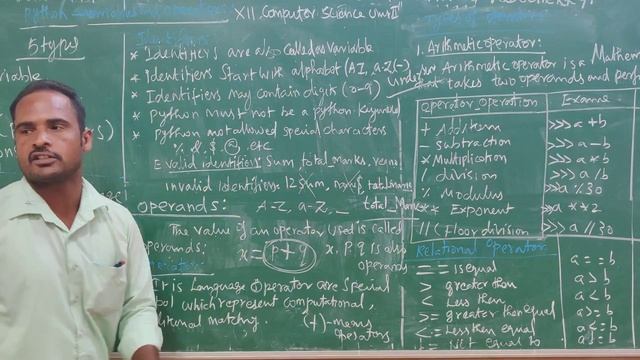 XII. Computer Science Unit II
5 types
* Identifiers are also called as variable
* Identifiers Start with alphabet (AZ, a-z(-)
* Identifiers may contain digits (0-9)
* Python must not be a python keyword
* python not allowed special characters
% & $ @, etc
Evalid identifiers: Sum total_marks,
invalid Identifiers
total_Mark
operands: AZ, a-Z, _
The value of an operator used is called
operands: x = p + q x, P, q is also
operands
It is Language Operator are Special
which represent computational,
matching. (+) - means
operators
1. Arithmetic operator:
Arithmetic operator is a Mathem
that takes two operands and perf
operator operation Example
+ >>> a + b
- subtraction >>> a - b
* Multiplication >>> a * b
/ division >>> a / b
% Modulus >>> a % 30
** Exponent >>> a ** 2
// (Floor division) >>> a // 30
Relational Operator
== is equal a == b
> greater than a > b
< Less than a < b
>= greater than equal a >= b
<= Less than equal a <= b